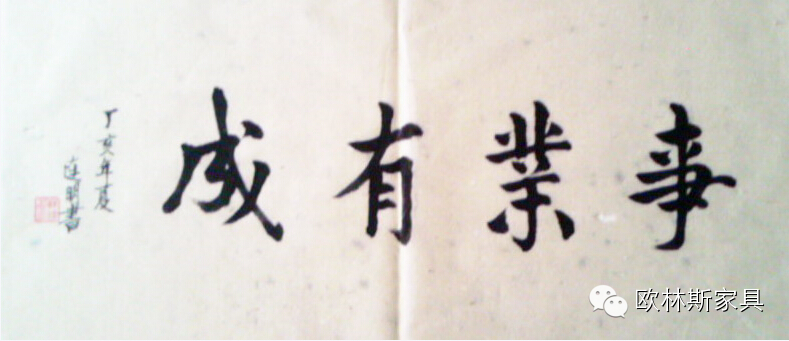 事業有成
丁亥年夏
明書
欧林斯家具